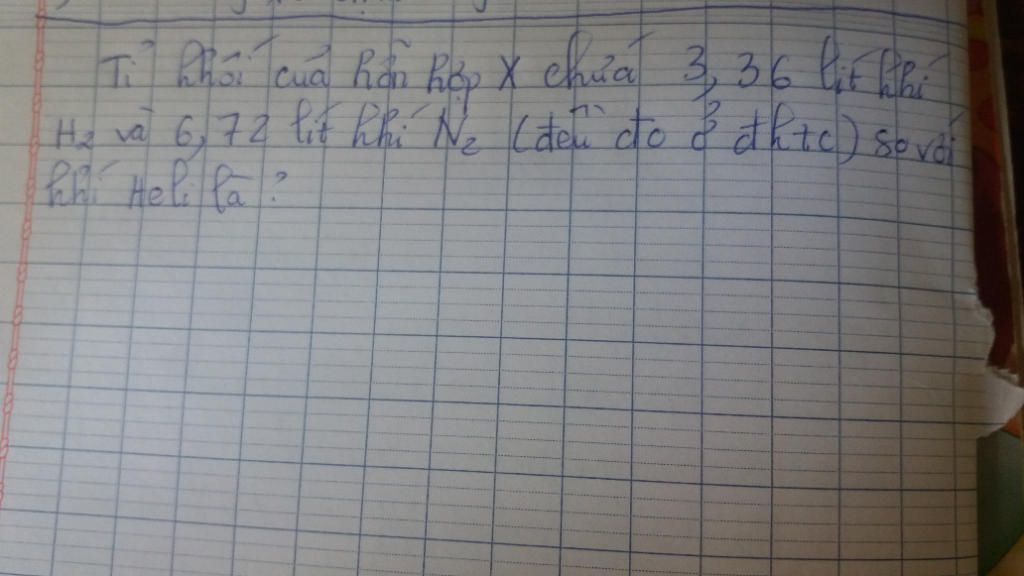 Tỉ khối của hỗn hợp X chứa 3,36 lít khí
H₂ và 6,72 lít khí N₂ (đều đo ở đktc) so với
khí Heli là ?